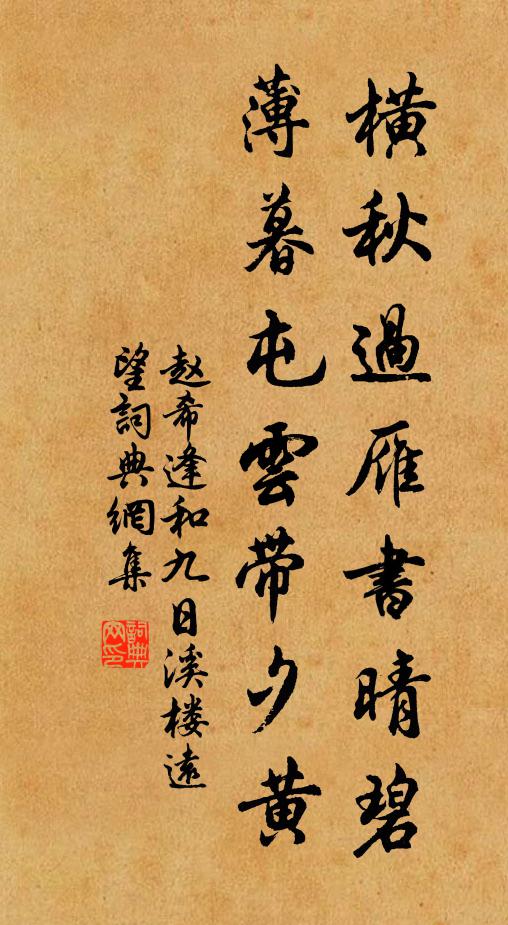 横秋過雁書晴碧
薄暮屯雲帶夕黄
赵希逢和九日溪楼遠
望詞典網集
詞典
网印